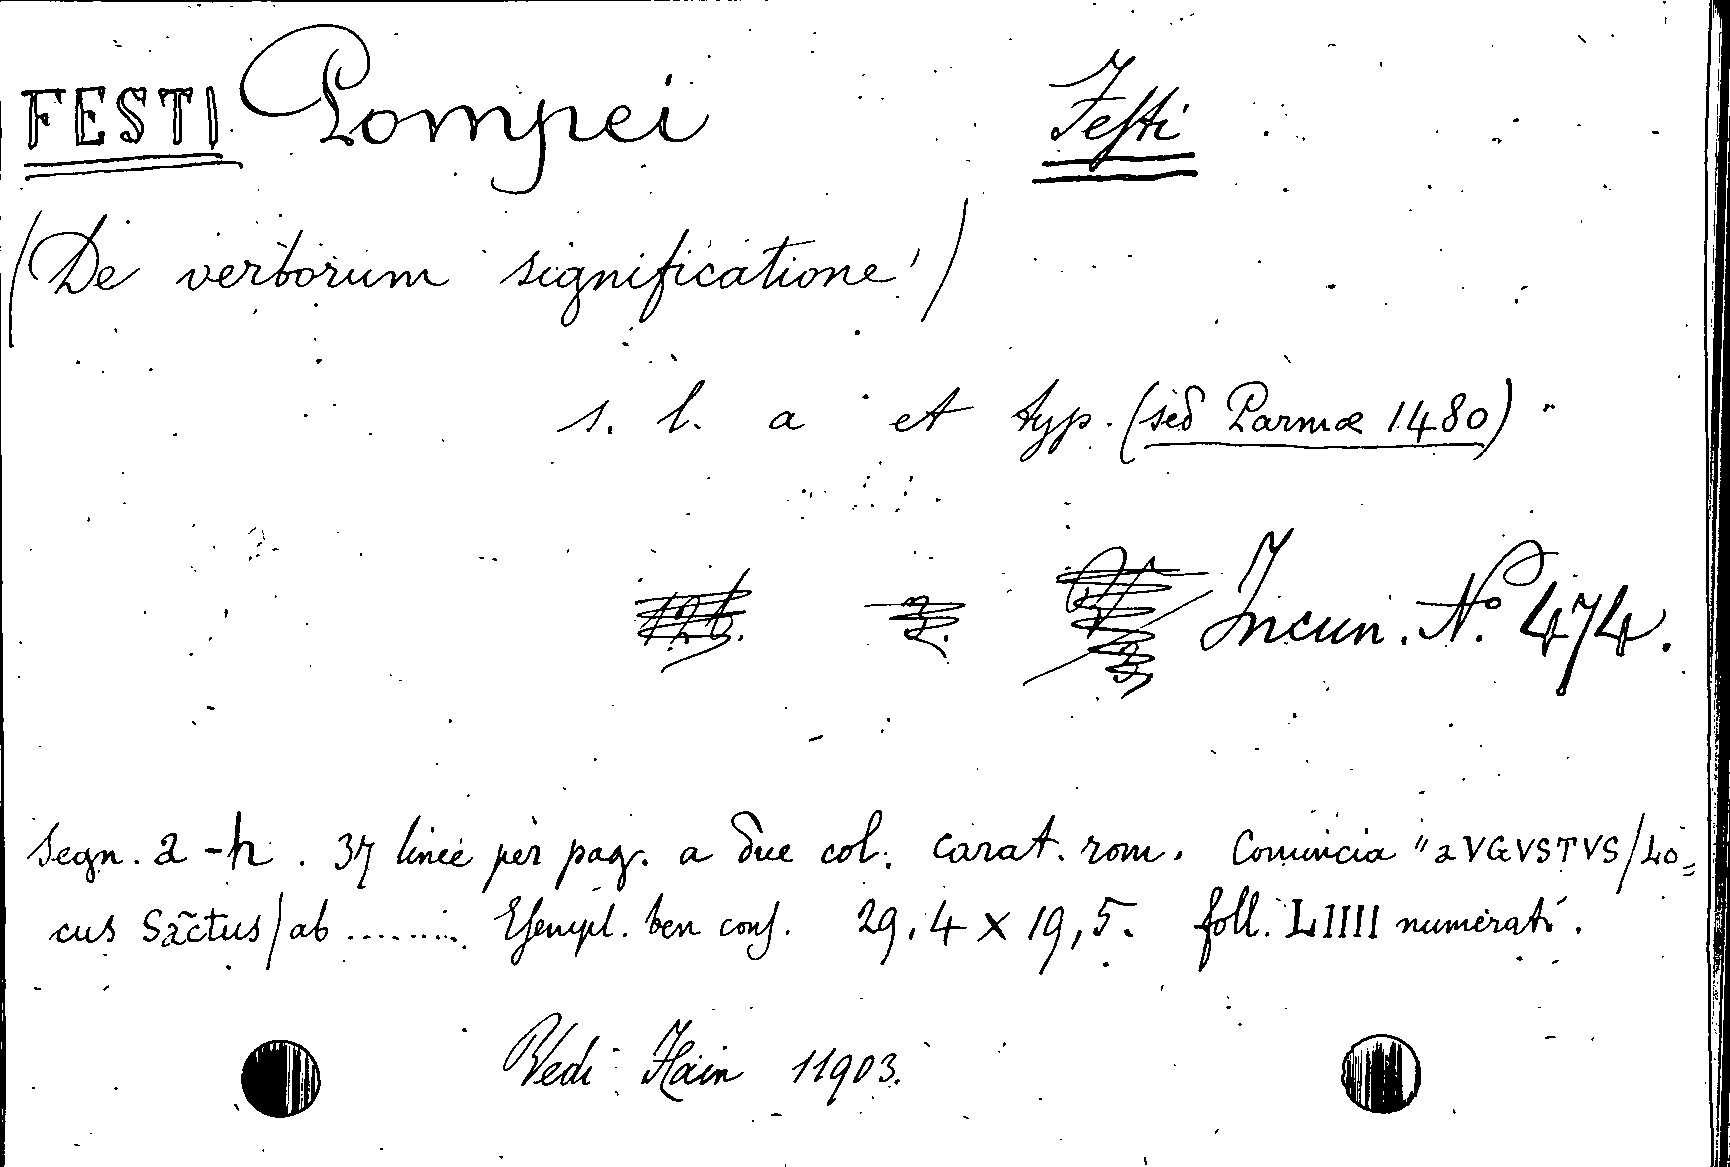 FESTI Pompei Festi
(De verborum significatione)
s. l. a et typ. (sed Parmæ 1480)
Incun. Nº 474.
Segn. a-h. 37 linee per pag. a due col. carat. rom. Comincia "aVGVSTVS/Lo=
cus Sãctus/ab ......... Esempl. ben cons. 29,4 x 19,5. foll. LIIII numerati.
Vedi Hain 11903.